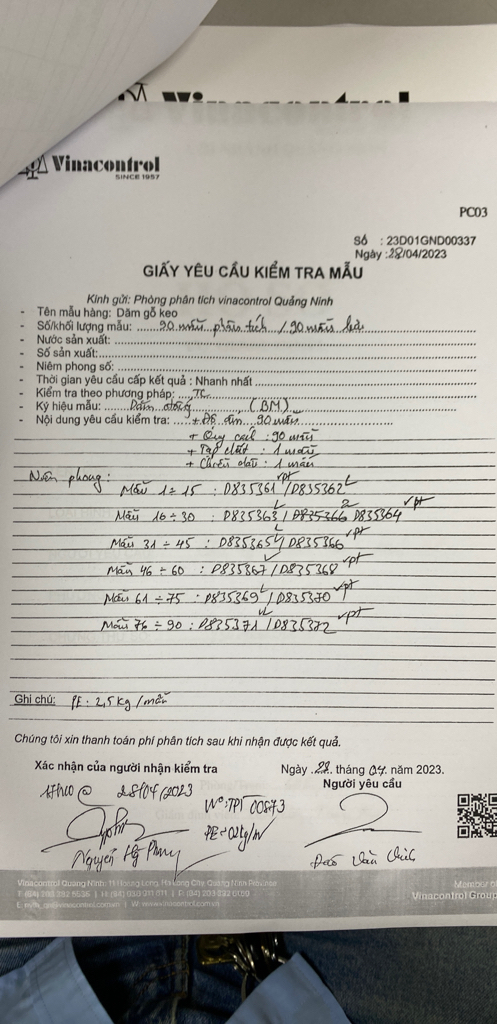 Vinacontrol
Vinacontrol
SINCE 1957
PC03
Số : 23D01GND00337
Ngày :28/04/2023
GIẤY YÊU CẦU KIỂM TRA MẪU
Kính gửi: Phòng phân tích vinacontrol Quảng Ninh
- Tên mẫu hàng: Dăm gỗ keo
- Số/khối lượng mẫu: 90 mẫu phân tích / 90 mẫu
- Nước sản xuất:
- Số sản xuất:
- Niêm phong số:
- Thời gian yêu cầu cấp kết quả : Nhanh nhất
- Kiểm tra theo phương pháp: TC
- Ký hiệu mẫu: Dăm (BM)
- Nội dung yêu cầu kiểm tra: + Độ ẩm 90 mẫu
+ Quy cách : 90 mẫu
+ Tạp chất : 1 mẫu
+ : 1 mẫu
Niêm phong:
Mẫu 1 ÷ 15 : D835361 / D835362 pt
Mẫu 16 ÷ 30 : D835363 / D835366 D835364 pt
Mẫu 31 ÷ 45 : D835365 / D835366 pt
Mẫu 46 ÷ 60 : D835367 / D835368 pt
Mẫu 61 ÷ 75 : D835369 / D835370 pt
Mẫu 76 ÷ 90 : D835371 / D835372 pt
Ghi chú: PE : 2,5 kg / mẫu
Chúng tôi xin thanh toán phí phân tích sau khi nhận được kết quả.
Xác nhận của người nhận kiểm tra
Ngày 28 tháng 04 năm 2023.
Người yêu cầu
17h00 @ 28/04/2023
Nº: TPT 00873
Nguyễn
Đào Văn
Vinacontrol Quang Ninh: 11 Hoang Long, Ha Long City, Quang Ninh Province
Member of
Vinacontrol Group